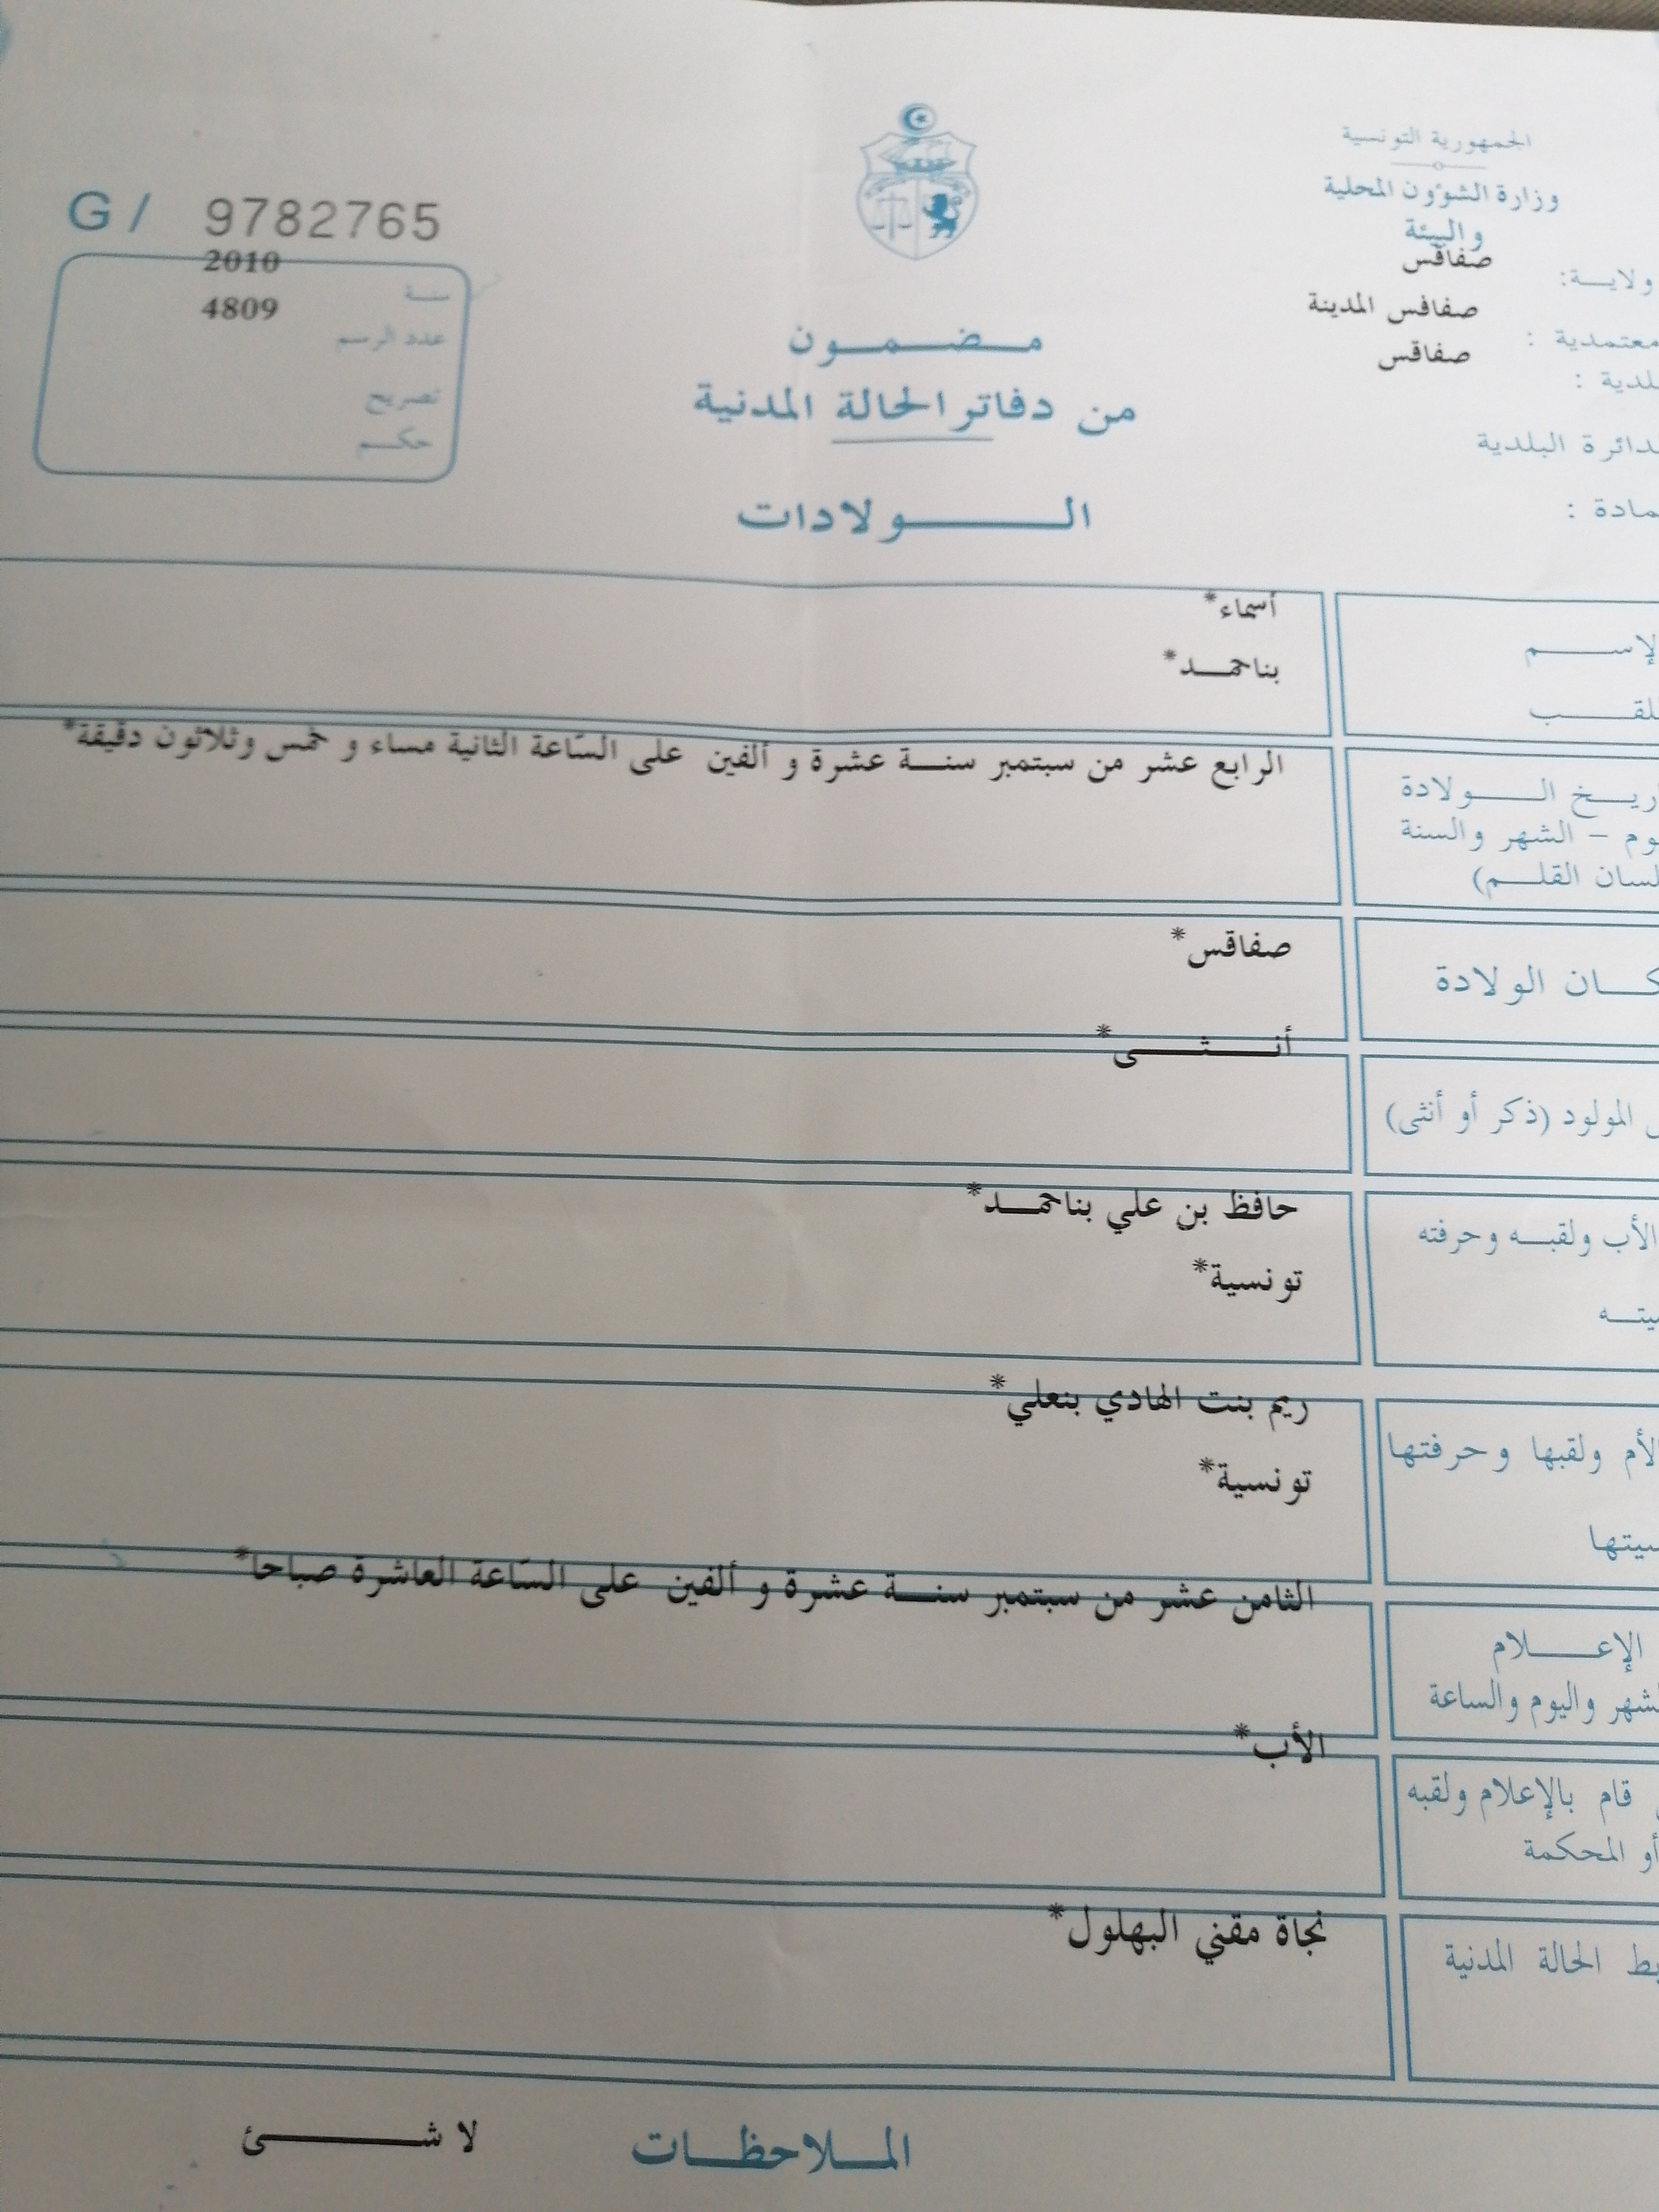 الجمهورية التونسية
وزارة الشؤون المحلية
والبيئة
ولاية: صفاقس
معتمدية : صفاقس المدينة
بلدية : صفاقس
الدائرة البلدية
عمادة :
G / 9782765
سنة 2010
عدد الرسم 4809
تصريح
حكم
مضمون
من دفاتر الحالة المدنية
الولادات
الإسم أسماء*
اللقب بناحمد*
تاريخ الولادة الرابع عشر من سبتمبر سنة عشرة و ألفين على السّاعة الثانية مساء و خمس وثلاثون دقيقة*
يوم – الشهر والسنة
لسان القلم)
مكان الولادة صفاقس*
المولود (ذكر أو أنثى) أنثى*
الأب ولقبه وحرفته حافظ بن علي بناحمد*
تونسية*
الأم ولقبها وحرفتها ريم بنت الهادي بنعلي*
تونسية*
الإعلام الثامن عشر من سبتمبر سنة عشرة و ألفين على السّاعة العاشرة صباحا*
الشهر واليوم والساعة
قام بالإعلام ولقبه الأب*
أو المحكمة
ضابط الحالة المدنية نجاة مقني البهلول*
الملاحظات لا شئ